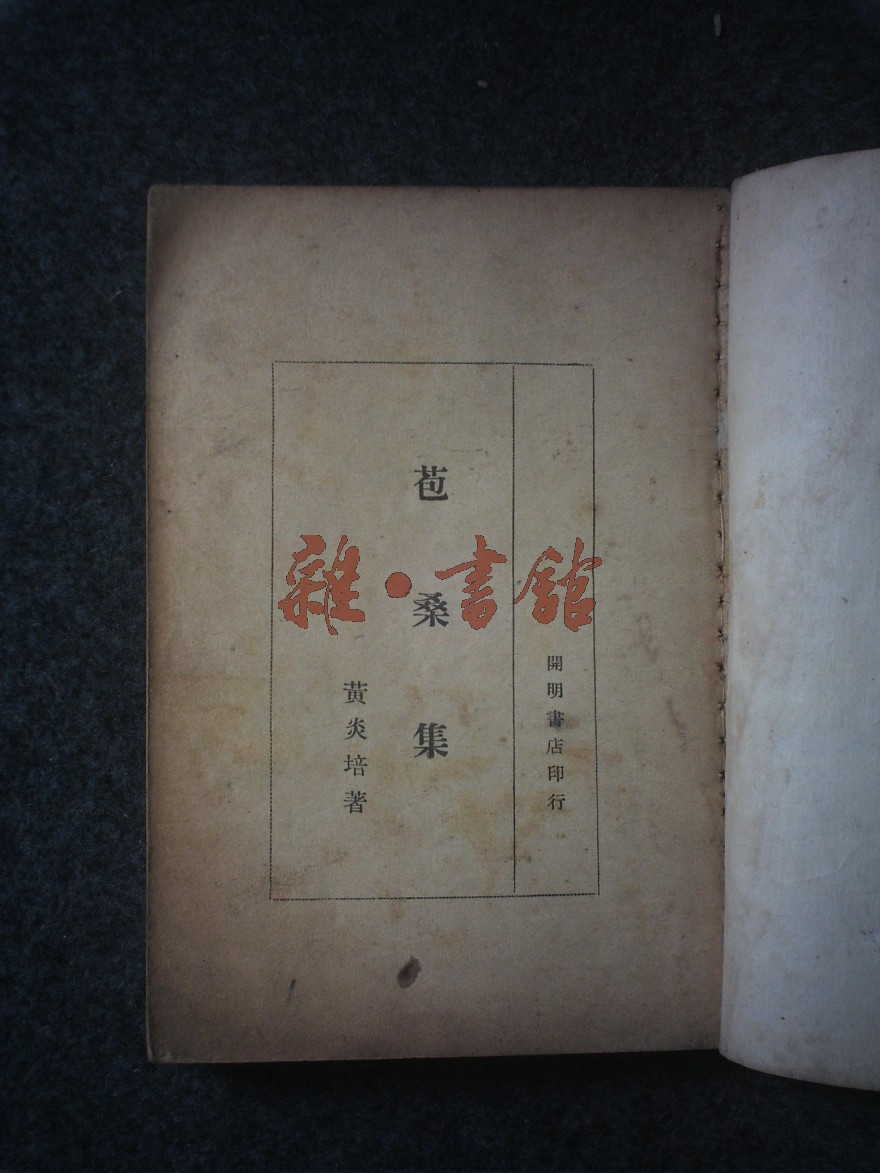 開明書店印行
苞桑集
黃炎培著
雜·書館